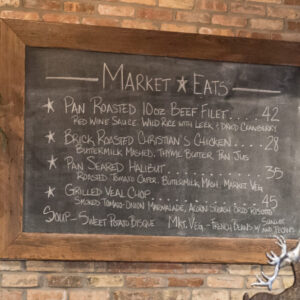 MARKET ★ EATS
★ PAN ROASTED 10OZ BEEF FILET . . . . 42
RED WINE SAUCE WILD RICE WITH LEEK & DRIED CRANBERRY
★ BRICK ROASTED CHRISTIAN'S CHICKEN . . . . 28
BUTTERMILK MASHED, THYME BUTTER, PAN JUS
★ PAN SEARED HALIBUT . . . . 36
ROASTED TOMATO CAPER, BUTTERMILK MASH, MARKET VEG
★ GRILLED VEAL CHOP . . . . 45
SMOKED TOMATO-ONION MARMALADE, ACORN SQUASH RISOTTO
SOUP - SWEET POTATO BISQUE MKT. VEG - FRENCH BEANS W/ SHALLOT AND PECANS